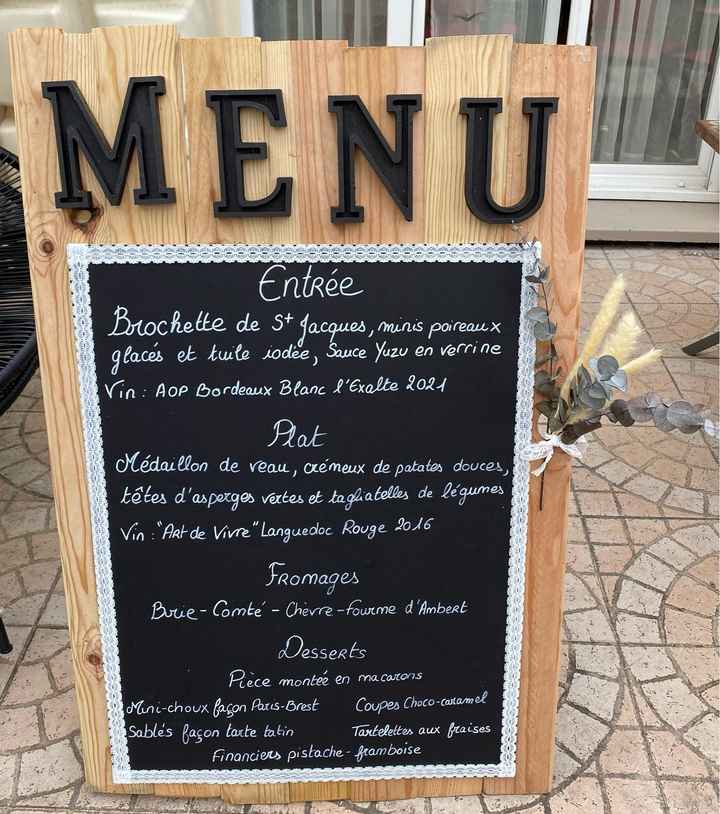 MENU
Entrée
Brochette de St Jacques, minis poireaux
glacés et tuile iodée, Sauce Yuzu en verrine
Vin : AOP Bordeaux Blanc l'Exalte 2021
Plat
Médaillon de veau, crémeux de patates douces,
têtes d'asperges vertes et tagliatelles de légumes
Vin : "Art de Vivre" Languedoc Rouge 2016
Fromages
Brie - Comté - Chèvre - Fourme d'Ambert
Desserts
Pièce montée en macarons
Mini-choux façon Paris-Brest Coupes Choco-caramel
Sablés façon tarte tatin Tartelettes aux fraises
Financiers pistache - framboise